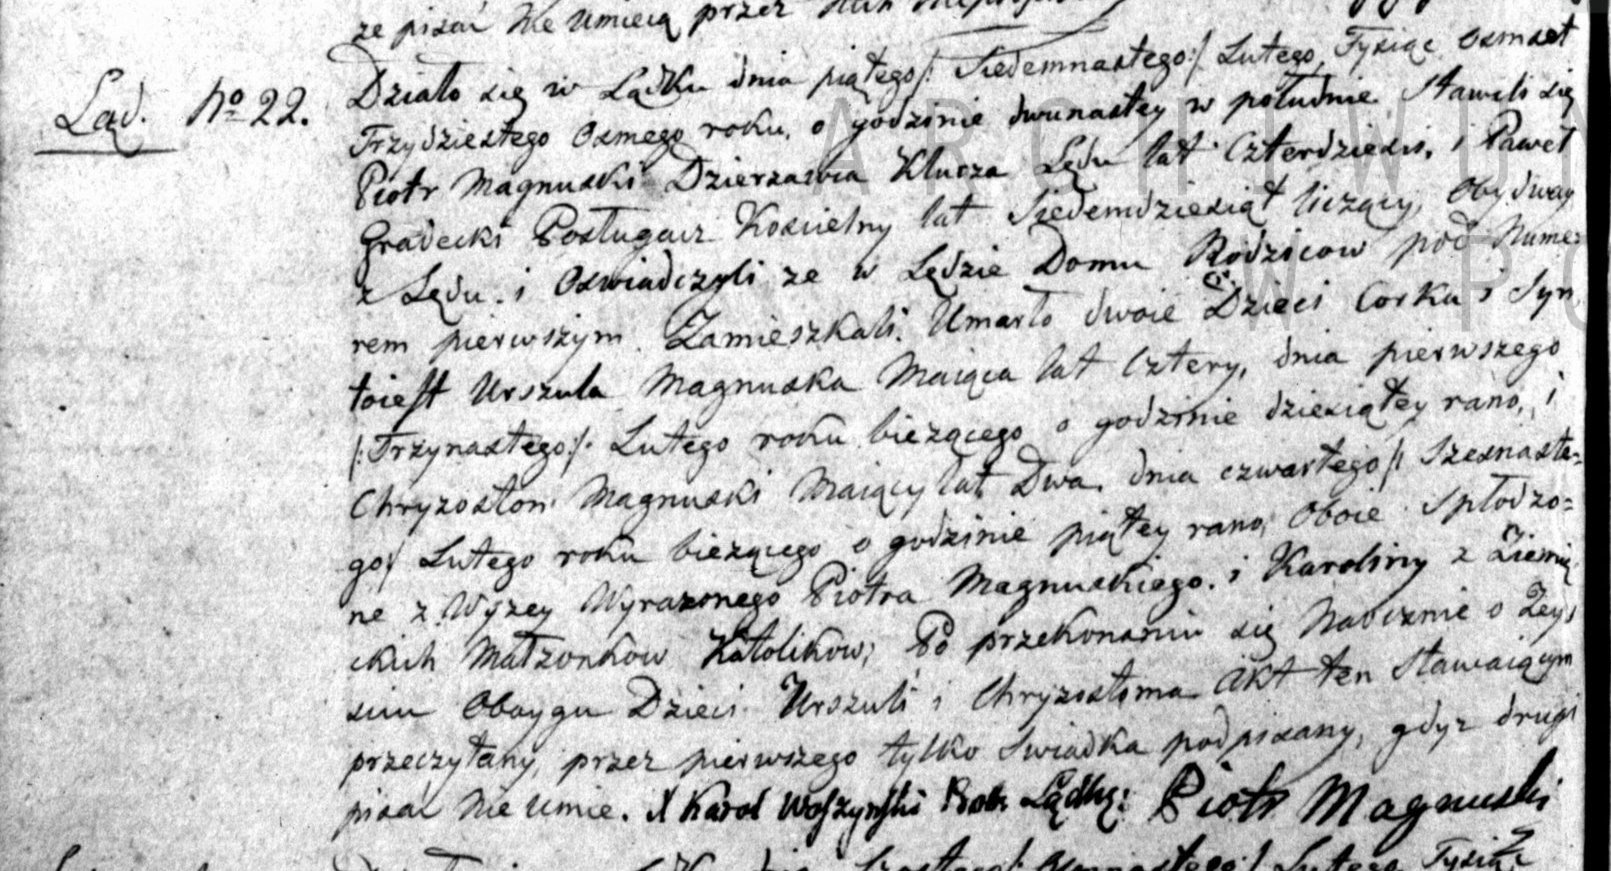 ze pisać nie umieią przez
Ląd. No 22.
Działo się w Lądku dnia piątego /: Siedemnastego :/ Lutego, Tysiąc osmset
Trzydziestego Osmego roku, o godzinie dwunastey w południe. Stawili się
Piotr Magnuski Dzierzawca Klucza Lędu lat Czterdziesci, i Paweł
Gradecki Posługacz Koscielny lat Siedemdziesiąt liczący, Obydway
z Lędu. i Oswiadczyli ze w Lędzie Domu Rodzicow pod Nume=
rem pierwszym Zamieszkali. Umarło dwoie Dzieci Corka i Syn
toiest Urszula Magnuska Maiąca lat Cztery, dnia pierwszego
/: Trzynastego :/ Lutego roku bieżącego o godzinie dziesiątey rano, i
Chryzostom Magnuski Maiący lat Dwa. dnia czwartego /: Szesnaste=
go / Lutego roku bieżącego o godzinie piątey rano, Oboie Spłodzo=
ne z Wyzey Wyrazonego Piotra Magnuskiego. i Karoliny z Ziemię
ckich Małzonkow Katolikow; Po przekonaniu się Naocznie o Zey
sciu Oboygu Dzieci Urszuli i Chryzostoma Akt ten Stawaiącym
przeczytany, przez pierwszego tylko Swiadka podpisany, gdyz drugi
pisać nie umie. X Karol Piotr Magnuski
ARCHIWUM
W PO
Lutego Tysiąc